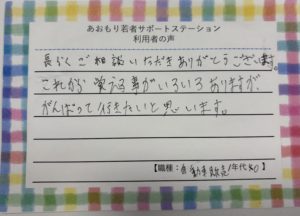 あおもり若者サポートステーション
利用者の声
長らくご相談いただきありがとうございます。
これから覚える事がいろいろありますが、
がんばって行きたいと思います。
【職種：自動車 /年代 】